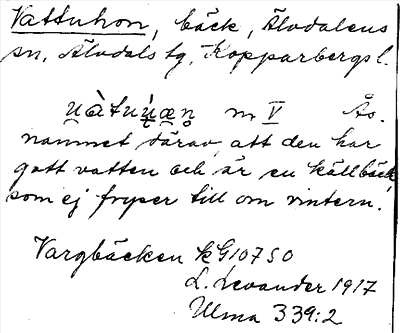 Vattuhon, bäck, Älvdalens
sn, Älvdals tg, Kopparbergs l.
m V Ås.
namnet därav, att den har
gott vatten och är en källbäck,
som ej fryser till om vintern.
Vargbäcken kG10750
L. Levander 1917
Ulma 339:2